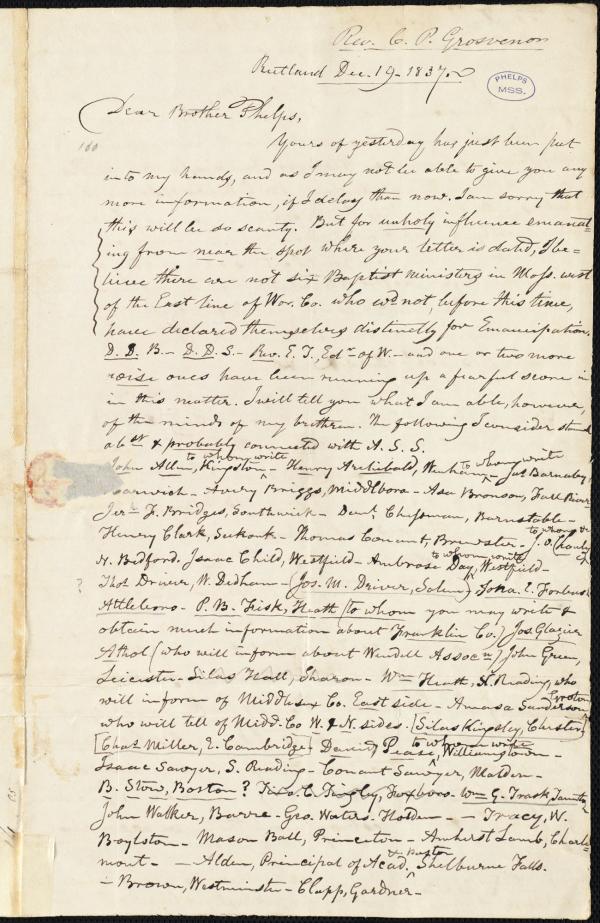 Rev. C. P. Grosvenor
Rutland Dec. 19 - 1837.
PHELPS
MSS.
Dear Brother Phelps,
160
Yours of yesterday has just been put
into my hands, and as I may not be able to give you any
more information, if I delay than now. I am sorry that
this will be so scanty. But for unholy influence emanat=
ing from near the spot where your letter is dated, I be=
lieve there are not six Baptist ministers in Mass. west
of the East line of Wor. Co. who wd. not, before this time,
have declared themselves distinctly for Emancipation.
D. D. B. - D. D. S. - Rev. E. T., Edr. of W. - and one or two more
wise ones have been running up a fearful score in
in this matter. I will tell you what I am able, however,
of the minds of my brethren. The following I consider
& probably connected with A. S. S.
to whom write to whom write
John Allen, Kingston - Henry Archibald, Wenham - Jas Barnaby,
Harwich - Avery Briggs, Middleboro - Asa Bronson, Fall River
Southwick - Danl. Chessman, Barnstable -
to whom
Henry Clark, Seekonk. Thomas Conant, Brewster - J. O. Choules
N. Bedford. Isaac Child, Westfield - Ambrose Day, Westfield -
to whom write
? Thos Driver, W. Dedham - (Jos. M. Driver, Salem)
Attleboro - P. B. Fisk, Heath (to whom you may write &
obtain much information about Franklin Co.) Jos. Glazier
Athol (who will inform about Wendell Associn) John Green,
Leicester - Silas Hall, Sharon - Wm Heath, N. Reading, who
will inform of Middlesex Co. East side - Amasa Sanderson
Groton
who will tell of Midd. Co W. & N. sides. [Silas Kingsley, Chester]
[Chas. Miller, E. Cambridge] - David Pease, Williamstown -
to whom write
Isaac Sawyer, S. Reading - Conant Sawyer, Malden -
B. Stow, Boston? Tingley, Foxboro - Wm G. Trask, Taunton
John Walker, Barre - Geo. Waters. Holden - - Tracy, W.
Boylston - Mason Ball, Princeton - Amherst Lamb, Charle=
mont - - Alden, Principal of Acad. & Pastor Shelburne Falls.
- Brown, Westminster - Clapp, Gardner -